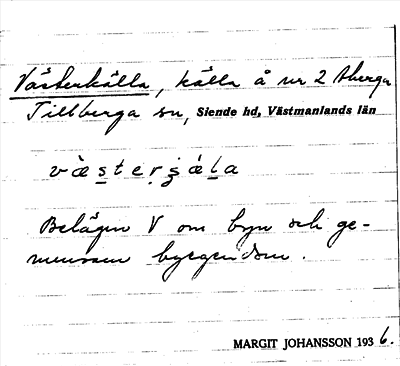 Västerkälla, källa å nr 2 Åberga
Tillberga sn, Siende hd, Västmanlands län
væ̀stẹrʂæ̀la
Belägen V om byn och ge-
mensam byegendom.
MARGIT JOHANSSON 1936.